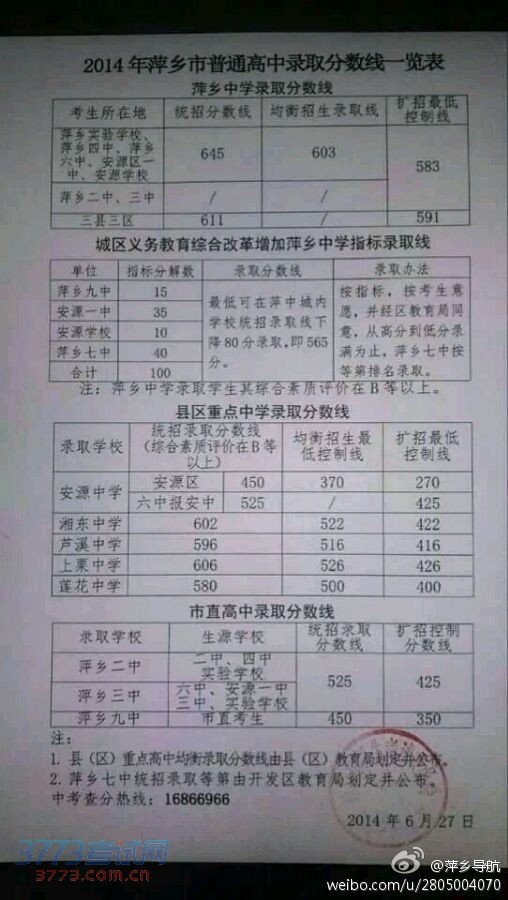 2014年萍乡市普通高中录取分数线一览表
萍乡中学录取分数线
考生所在地 统招分数线 均衡招生录取线 扩招最低控制线
萍乡实验学校、萍乡四中、萍乡六中、安源区一中、安源学校 645 603 583
萍乡二中、三中 / /
三县三区 611 / 591
城区义务教育综合改革增加萍乡中学指标录取线
单位 指标分解数 录取分数线 录取办法
萍乡九中 15
安源一中 35
安源学校 10
萍乡七中 40
合计 100
最低可在萍中城内
学校统招录取线下
降80分录取,即565
分。
按指标,按考生意
愿,并经区教育局同
意,从高分到低分录
满为止,萍乡七中按
等第排名录取。
注:萍乡中学录取学生其综合素质评价在B等以上。
县区重点中学录取分数线
录取学校 统招录取分数线(综合素质评价在B等以上) 均衡招生最低控制线 扩招最低控制线
安源中学 安源区 450 370 270
六中报安中 525 / 425
湘东中学 602 522 422
芦溪中学 596 516 416
上栗中学 606 526 426
莲花中学 580 500 400
市直高中录取分数线
录取学校 生源学校 统招录取分数线 扩招控制分数线
萍乡二中 二中、四中实验学校 525 425
萍乡三中 六中、安源一中三中、实验学校
萍乡九中 市直考生 450 350
注:
1. 县(区)重点高中均衡录取分数线由县(区)教育局划定并公布。
2. 萍乡七中统招录取等第由开发区教育局划定并公布。
中考查分热线:16866966
2014年6月27日
3773考试网
3773.com.cn
@萍乡导航
weibo.com/u/2805004070